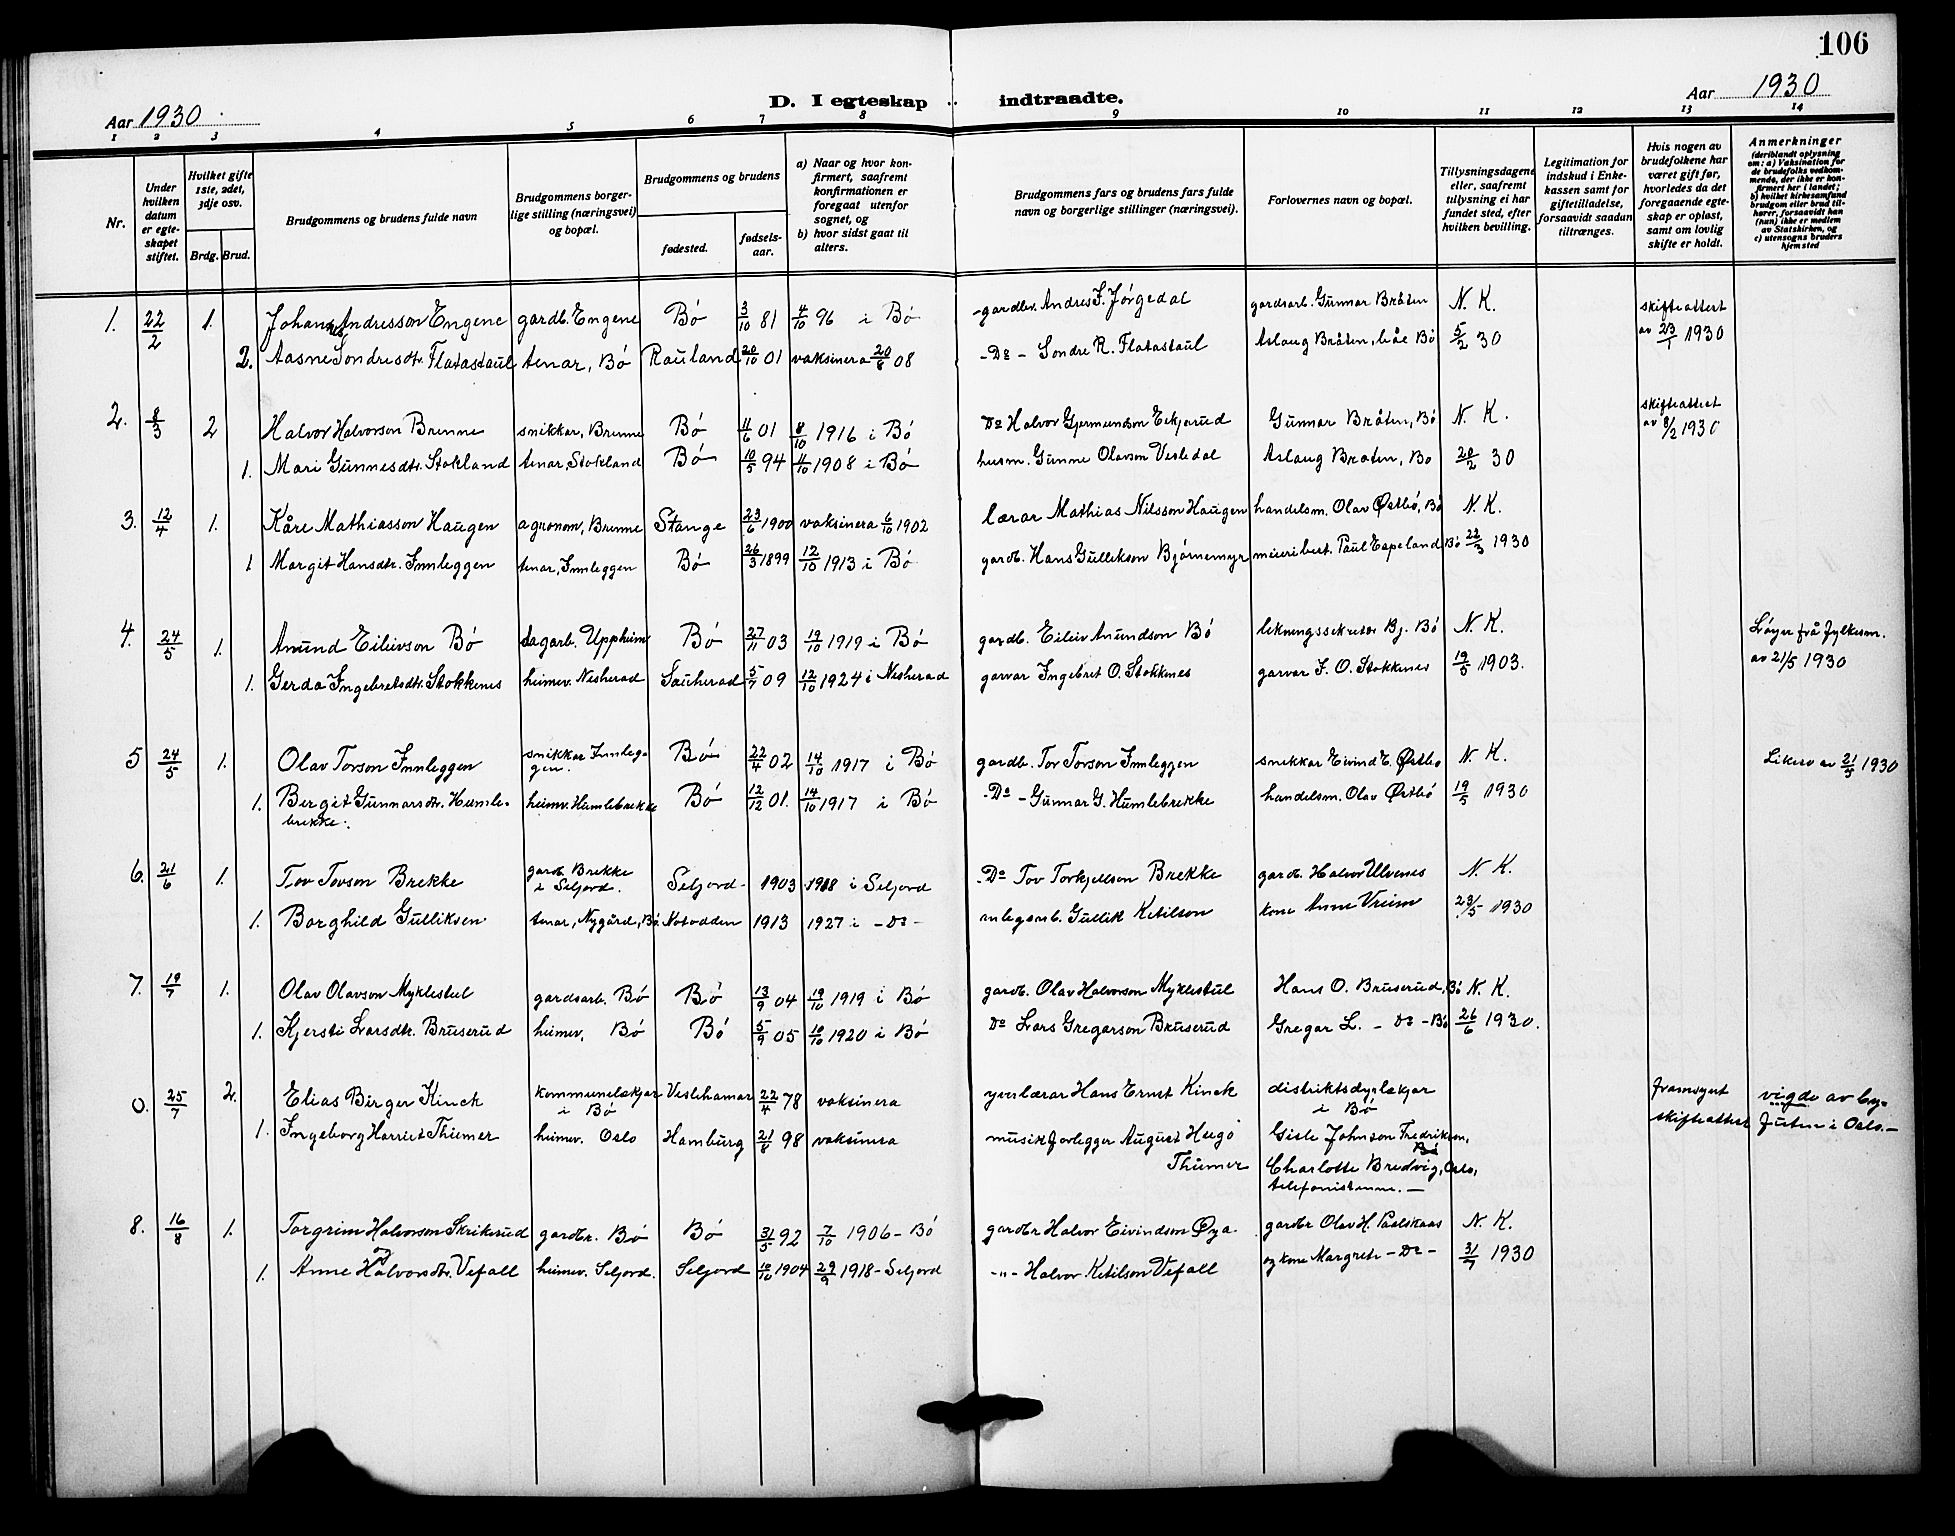 106
Aar 1930
D. I egteskap indtraadte.
Aar 1930
1 2 3 4 5 6 7 8 9 10 11 12 13 14
Nr.
Under hvilken datum er egteskapet stiftet.
Hvilket gifte 1ste, 2det, 3dje osv.
Brdg. Brud.
Brudgommens og brudens fulde navn
Brudgommens borgerlige stilling (næringsvei) og bopæl.
Brudgommens og brudens
fødested.
fødselsaar.
a) Naar og hvor konfirmert, saafremt konfirmationen er foregaat utenfor sognet, og
b) hvor sidst gaat til alters.
Brudgommens fars og brudens fars fulde navn og borgerlige stillinger (næringsvei).
Forlovernes navn og bopæl.
Tillysningsdagene eller, saafremt tillysning ei har fundet sted, efter hvilken bevilling.
Legitimation for indskud i Enkekassen samt for giftetilladelse, forsaavidt saadan tiltrænges.
Hvis nogen av brudefolkene har været gift før, hvorledes da det foregaaende egteskap er opløst, samt om lovlig skifte er holdt.
Anmerkninger (deriblandt oplysning om: a) Vaksination for de brudefolks vedkommende, der ikke er konfirmert her i landet; b) hvilket kirkesamfund brudgom eller brud tilhører, forsaavidt han (hun) ikke er medlem av Statskirken, og c) utensogns bruders hjemsted
1. 22/2 1. Johannes Andresson Engene gardb. Engene Bó 3/10 81 4/10 96 i Bó gardbr. Andres J. Jørgedal gardsarb. Gunnar Bråten N. K. skifteattest
2. Aasne Sondresdtr. Flatastaul tenar, Bó Rauland 20/10 01 vaksinera 20/8 08 -Do- Sondre R. Flatastaul Aslaug Bråten, båe Bó 5/2 30 av 23/1 1930
2. 8/3 2 Halvor Halvorson Brenne snikkar, Brenne Bó 11/6 01 8/10 1916 i Bó Do Halvor Gjermundson Eikjarud Gunnar Bråten, Bó N. K. skifteattest
1. Mari Gunnesdtr. Stokland tenar, Stokland Bó 10/5 94 11/10 1908 i Bó husm. Gunne Olavson Vesledal Aslaug Bråten, Bo 20/2 30 av 8/2 1930
3. 12/4 1. Kåre Mathiasson Haugen agronom, Brenne Stange 23/6 1900 vaksinera 6/10 1902 lærar Mathias Nilsson Haugen handelsm. Olav Østbó, Bó N. K.
1 Margit Hansdtr. Innleggen tenar, Innleggen Bó 26/3 1899 12/10 1913 i Bó gardb. Hans Gullikson Bjørnemyr meieribest. Paul Espeland Bó 22/3 1930
4. 24/5 1. Amund Eilivson Bó dagarb. Uppheim Bó 27/11 03 19/10 1919 i Bó gardb. Eiliv Amundson Bó likningssekretær Bj. Bó N. K. Løyve frå fylkesm.
1. Gerda Ingebretsdtr. Stokkenes heimev. Nesherad Sauherad 5/7 09 12/10 1924 i Nesherad garvar Ingebret O. Stokkenes garvar I. O. Stokkenes 19/5 1903. av 21/5 1930
5 24/5 1. Olav Torson Innleggen snikkar Innleggen. Bó 22/4 02 14/10 1917 i Bó gardb. Tor Torson Innleggen snikkar Eivind E. Østbó N. K. Likeso av 21/5 1930
1. Bergit Gunnarsdtr. Humlebrekke. heimev. Humlebrekke Bó 12/12 01. 14/10 1917 i Bó -Do- Gunnar G. Humlebrekke handelsm. Olav Østbó 19/5 1930
6. 21/6 1. Tov Tovson Brekke gardb. Brekke i Seljord. Seljord 1903 1918 i Seljord -Do Tov Torkjellson Brekke gardb. Halvor Ulvenes N. K.
1. Borghild Gulliksen tenar, Nygård, Bó. Notodden 1913 1927 i -Do- Gullik Ketilson kone Anne Vreim 23/5 1930
7. 19/7 1. Olav Olavson Myklestul gardsarb. Bó Bó 13/9 04 19/10 1919 i Bó gardb. Olav Halvorson Myklestul Hans O. Bruserud, Bó N. K.
1. Kjersti Larsdtr. Bruserud heimev. Bó Bó 5/9 05 10/10 1920 i Bó Do Lars Gregarson Bruserud Gregar L. -Do- Bó 26/6 1930.
0. 25/7 2. Elias Birger Kinck kommunelækjar i Bó Veslehamar 22/4 78 vaksinera yverlærar Hans Ernst Kinck distriktsdyrlækjar i Bó framsynt vigde av by-
1. Ingeborg Harriet Thiemer heimev. Oslo Hamburg 21/8 98 vaksinera musikforlegger August Hugo Thiemer Gisle Johnson Fredriksen, Bó skifteattest futen i Oslo.-
Charlotte Bredvig, Oslo, telefonistinne.-
8. 16/8 1. Torgrim Halvorson Skrikerud gardbr. Bó Bó 31/5 92 7/10 1906 - Bó gardbr Halvor Eivindson Øya gardbr Olav H. Paalskaas N. K.
1. Anne Halvorsdtr. Vefall heimev. Seljord. Seljord 10/10 1904 29/9 1918 - Seljord -"- Halvor Ketilson Vefall og kone Margrete -Do- 31/7 1930